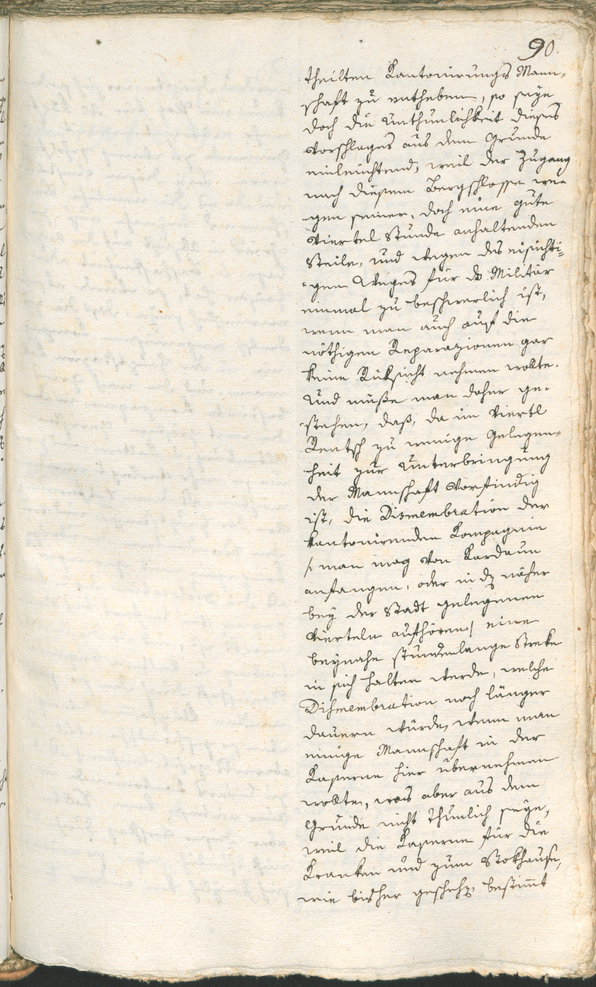 90.
theilten Kantonirungs Mann-
schaft zu entheben, so seye
doch die Unthunlichkeit dieses
Vorschlages aus dem Grunde
einleichtend, weil der Zugang
nach diesem Bergschlosse we-
gen seiner, doch eine gute
Viertel Stunde anhaltenden
Steile, und wegen des eisichti-
gen Weeges für das Militär
einmal zu beschwerlich ist,
wenn man auch auf die
nöthigen Reparazionen gar
keine Rüksicht nehmen wollte.
Und müße man daher ge-
stehen, daß, da im Viertl
Rentsch zu wenige Gelegen-
heit zur Unterbringung
der Mannschaft vorfindig
ist, die Dismembration der
kantonirenden Kompagnie
/: man mag von Kardaun
anfangen, oder in den näher
bey der Stadt gelegenen
Vierteln aufhören / eine
beynahe stundenlange Streke
in sich halten werde, welche
Dismembration noch länger
dauern würde, wenn man
einige Mannschaft in der
Kaserne hier übernehmen
wollte, was aber aus dem
Grunde nicht thunlich seye,
weil die Kaserne für die
Kranken und zum Stokhause,
wie bisher geschehen bestimt